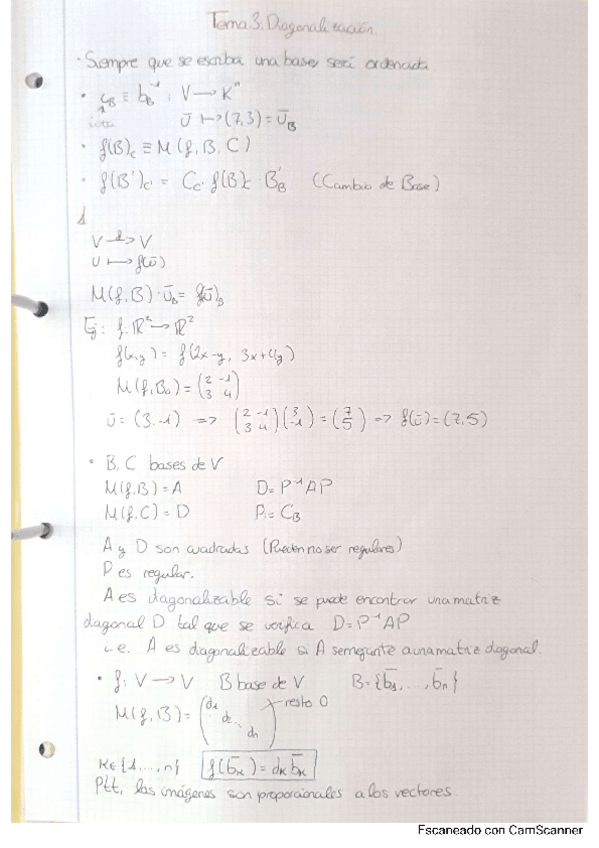 Tema 3. Diagonalización.
· Siempre que se escriba una base, será ordenada
· C_B ≡ b_B⁻¹ : V → Kⁿ
iota ū ↦ (7,3) = ū_B
· f(B)_C ≡ M(f, B, C)
· f(B')_C' = C_C' · f(B)_C · B'_B (Cambio de Base)
1
V →f V
u ↦ f(ū)
M(f,B) · ū_B = f(ū)_B
Ej: f: ℝ² → ℝ²
f(x,y) = f(2x-y, 3x+4y)
M(f,B₀) = (2 -1
3 4)
ū = (3,-1) => (2 -1 / 3 4)(3 / -1) = (7 / 5) => f(ū) = (7,5)
· B, C bases de V
M(f,B) = A D = P⁻¹AP
M(f,C) = D P := C_B
A y D son cuadradas (Pueden no ser regulares)
P es regular.
A es diagonalizable si se puede encontrar una matriz
diagonal D tal que se verifica D = P⁻¹AP
i.e. A es diagonalizable si A semejante a una matriz diagonal.
· f: V → V B base de V B = {b̄₁, ..., b̄n}
M(f,B) = (d₁ d₂ ... dn) resto 0
K ∈ {1, ..., n} f(b̄k) = dk b̄k
Ptt, las imágenes son proporcionales a los vectores.
Escaneado con CamScanner